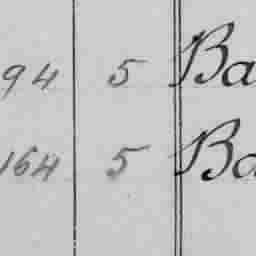 94 5 Ba
164 5 Ba